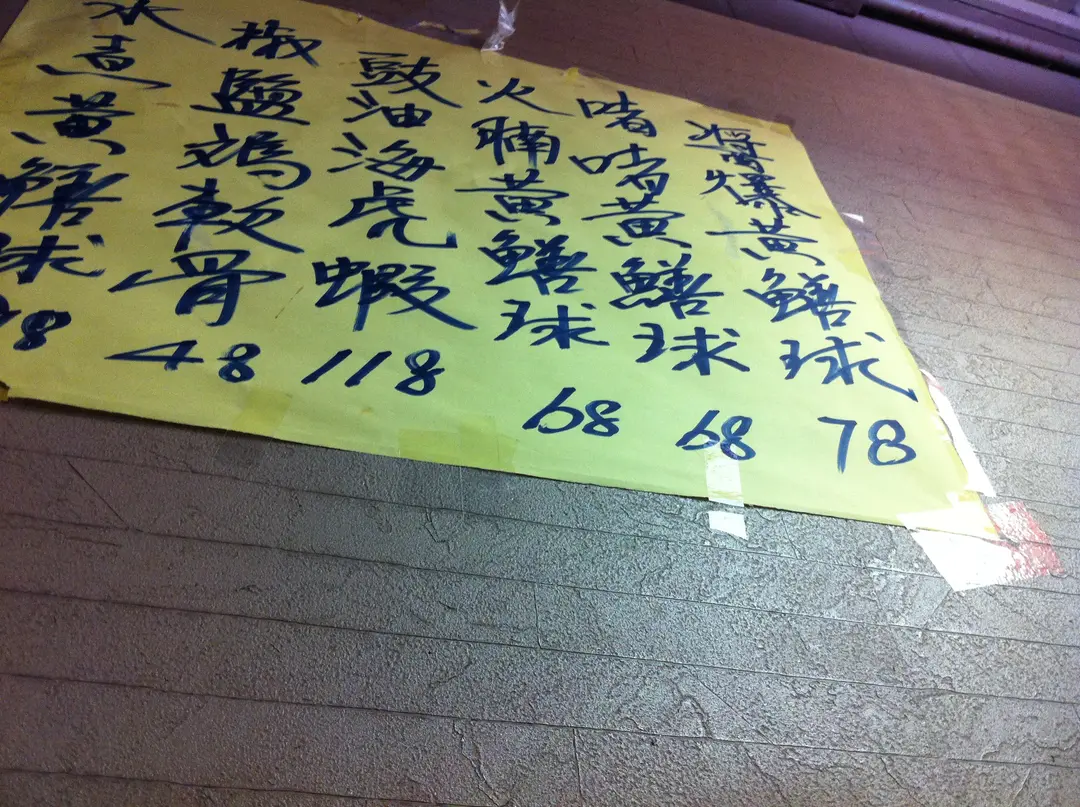 醬爆黃鱔球 78
啫啫黃鱔球 68
火腩黃鱔球 68
豉油海虎蝦 118
椒鹽鸡軟骨 48
水煮黃鱔球